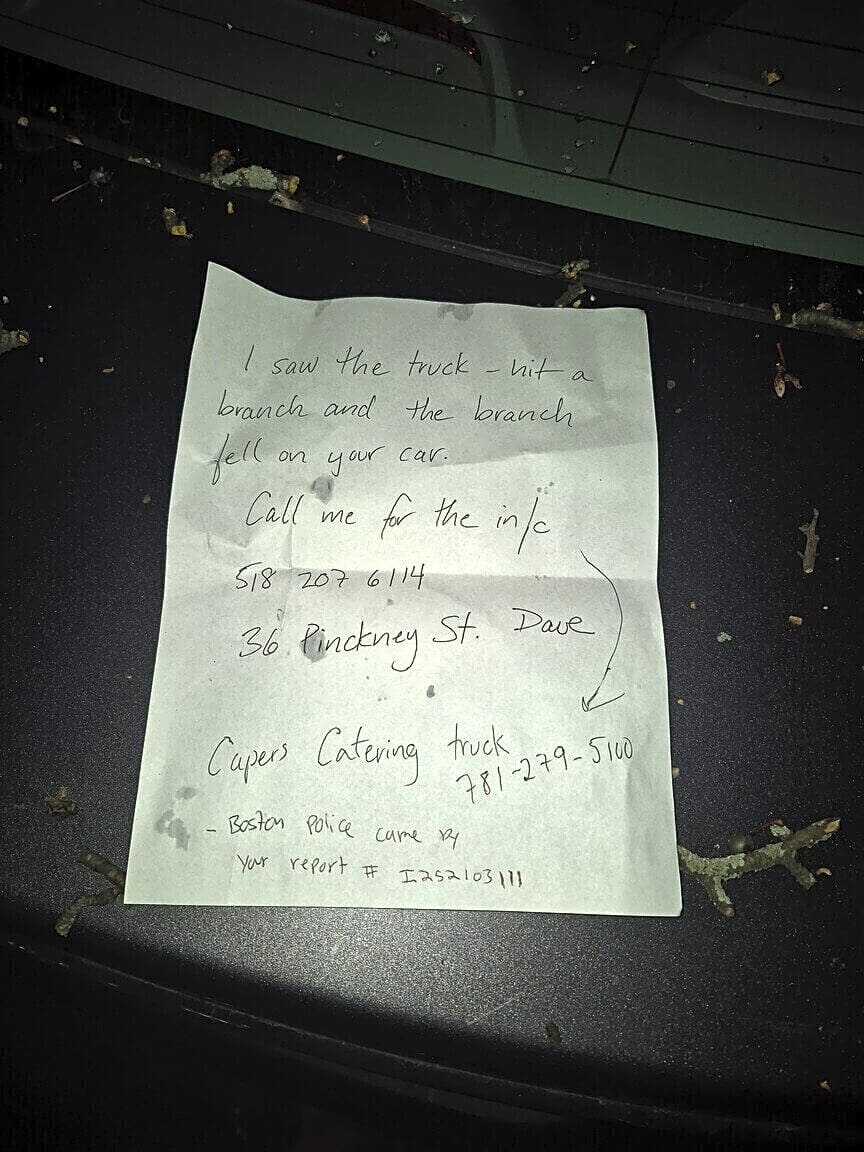 I saw the truck - hit a
branch and the branch
fell on your car.
Call me for the in/c
518 207 6114
36 Pinckney St. Dave
Capers Catering truck
781-279-5100
- Boston Police came by
Your report # I252103111